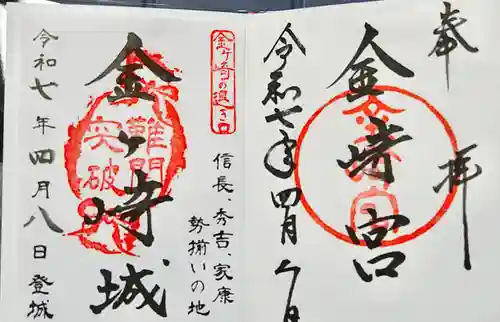 奉拝
金崎宮
令和七年四月八日
金ヶ崎の退き口
信長、秀吉、家康
勢揃いの地
金ヶ崎城
難関
突破
令和七年四月八日登城